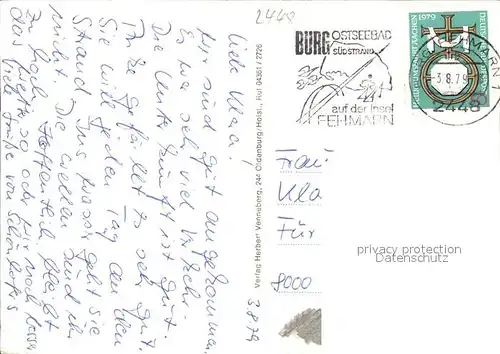 2440
Liebe Klara!
Wir sind gut angekommen.
Es war sehr viel Verkehr.
Die Unterkunft ist gut.
Ihr gefällt es sehr gut.
Sie will jeden Tag an den
Strand. Ins Wasser geht sie
nicht. Die Wellen sind ihr
zu hoch. Hoffentlich bleibt
das Wetter so oder wird noch besser
Viele Grüße von
3.8.79
Verlag Herbert Venneberg, 244 Oldenburg/Holst., Ruf 04361 / 2726
BURG OSTSEEBAD
SÜDSTRAND
auf der Insel
FEHMARN
1979
DEUTSCHE BUNDESPOST
FEHMARN 1
-3.8.79
2448
Frau
Kla
Für
8000
privacy protection
Datenschutz